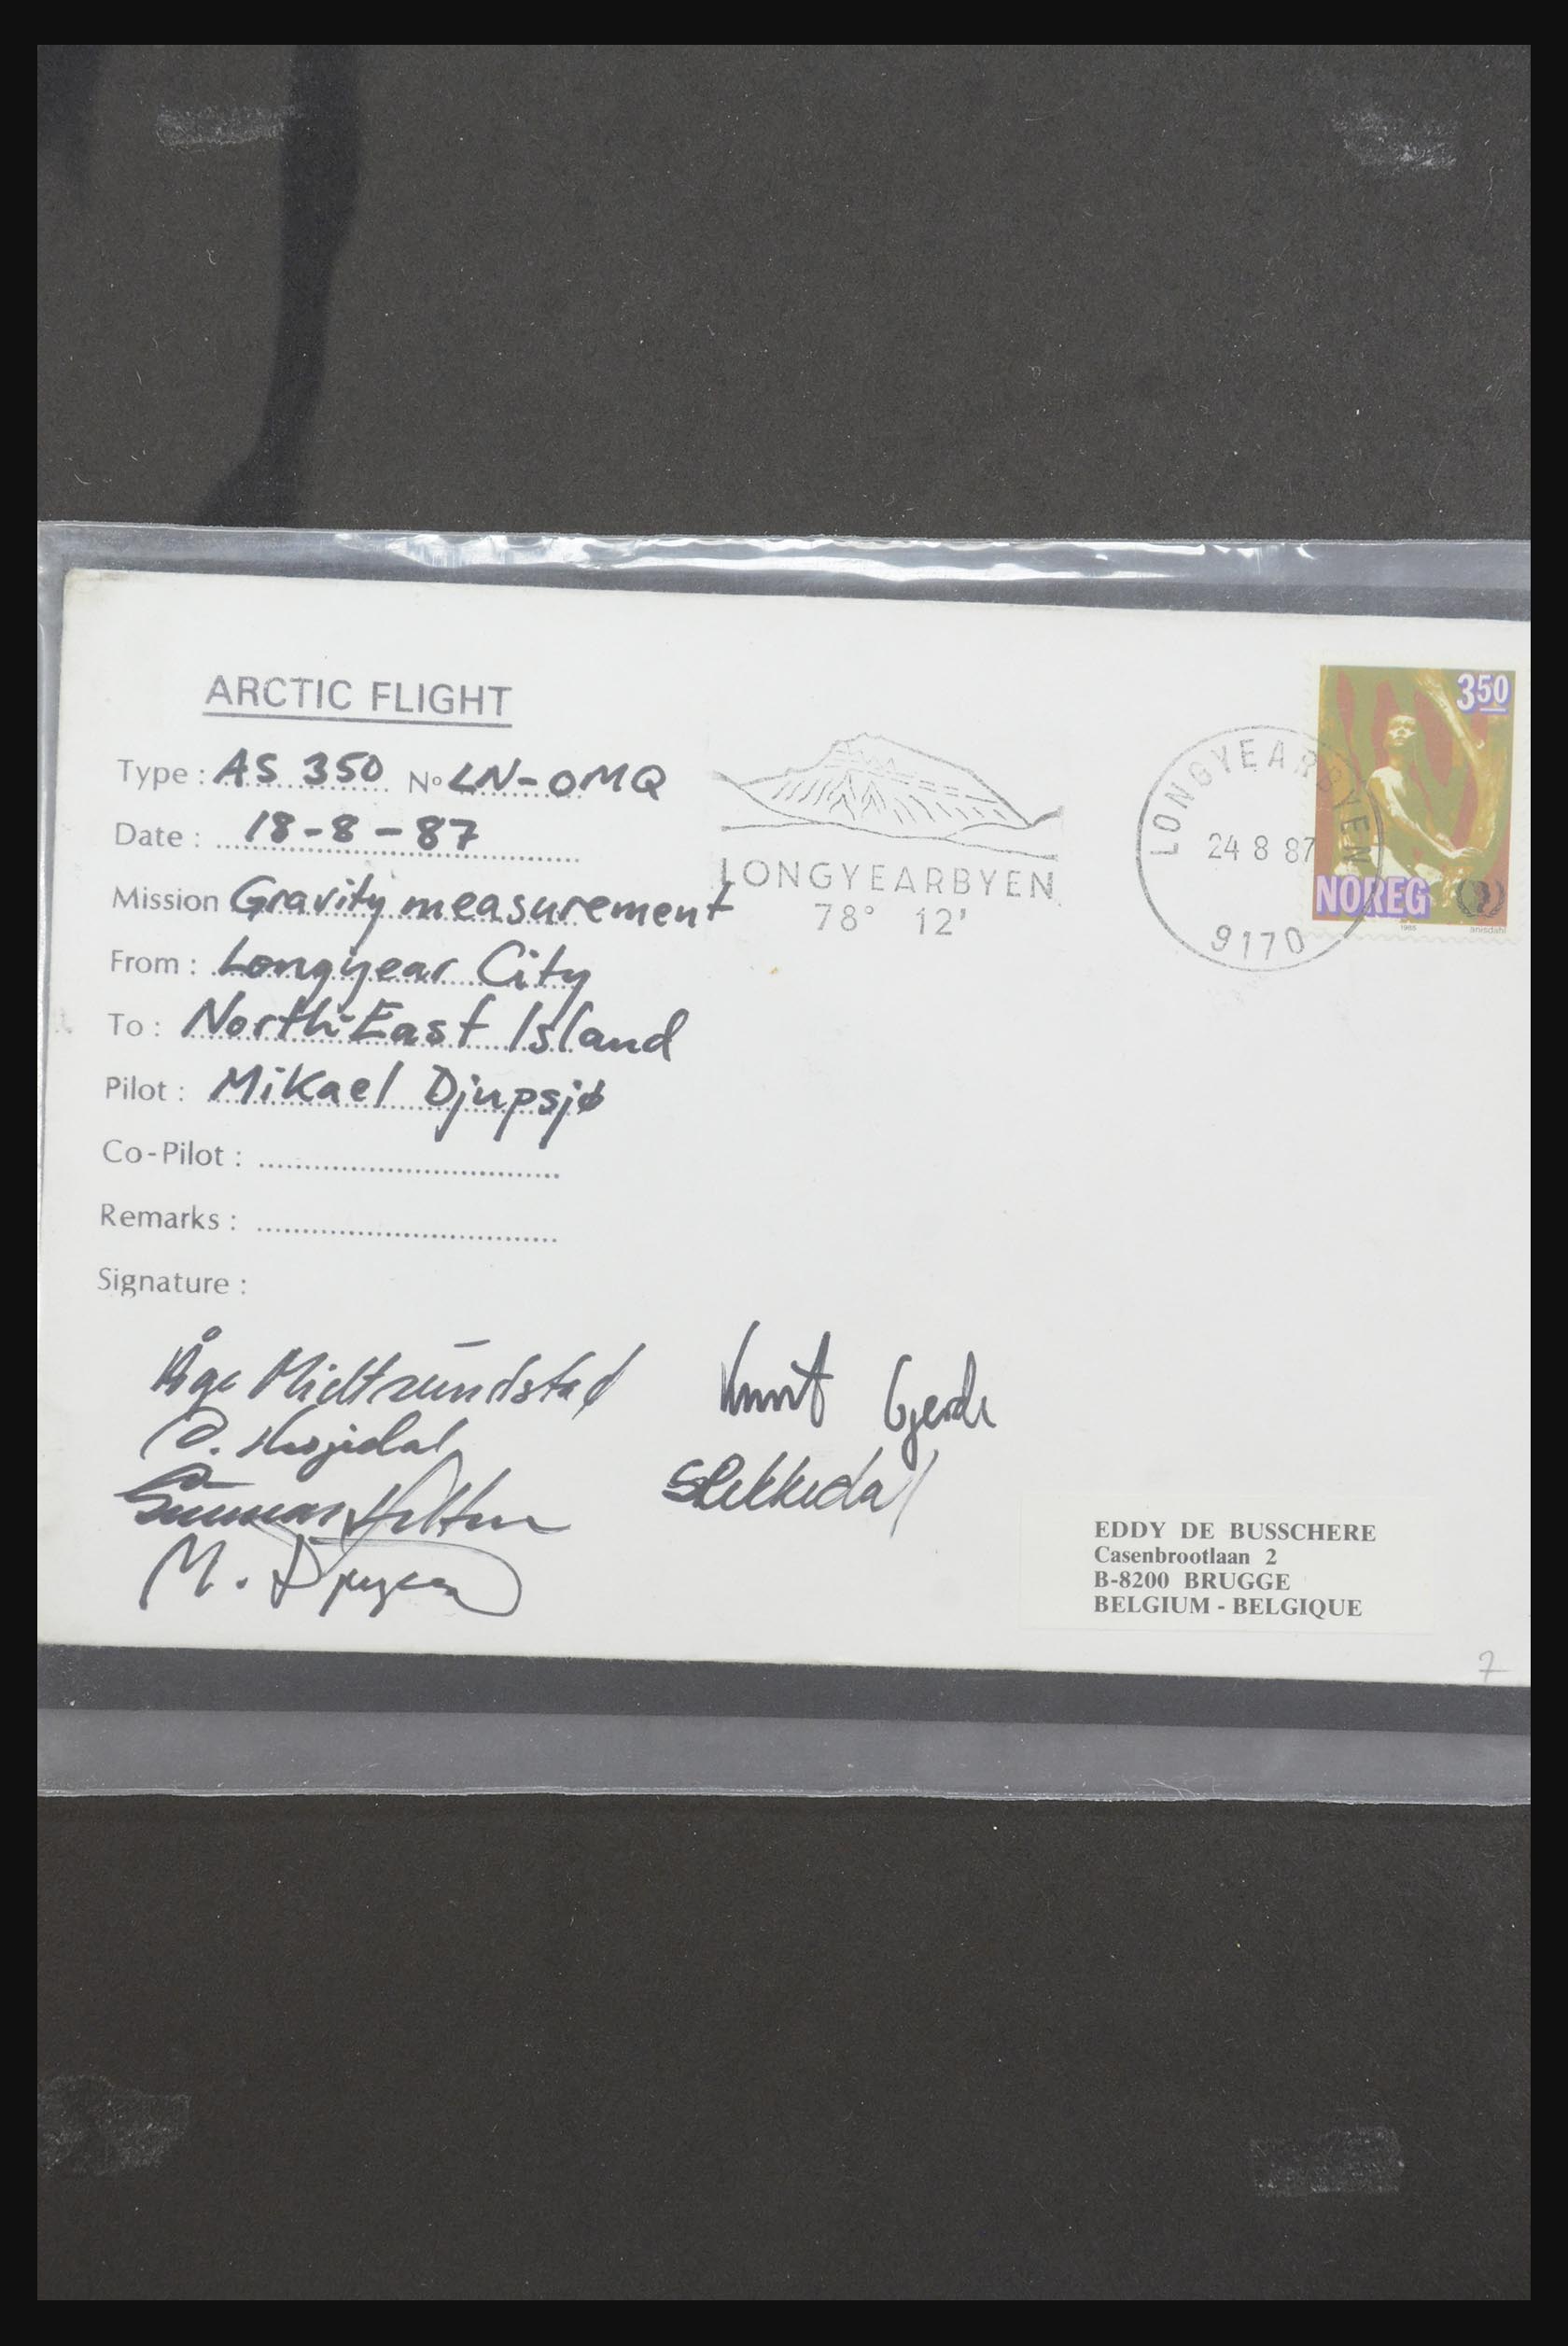 ARCTIC FLIGHT
Type : AS 350 No LN-OMQ
Date : 18-8-87
Mission Gravity measurement
From : Longyear City
To : North-East Island
Pilot : Mikael Djupsjø
Co-Pilot :
Remarks :
Signature :
Åge Midtsundstad
Knut Gjerde
Gunnar
M.
LONGYEARBYEN
78° 12'
LONGYEARBYEN
24 8 87
9170
350
NOREG
1985
EDDY DE BUSSCHERE
Casenbrootlaan 2
B-8200 BRUGGE
BELGIUM - BELGIQUE
7